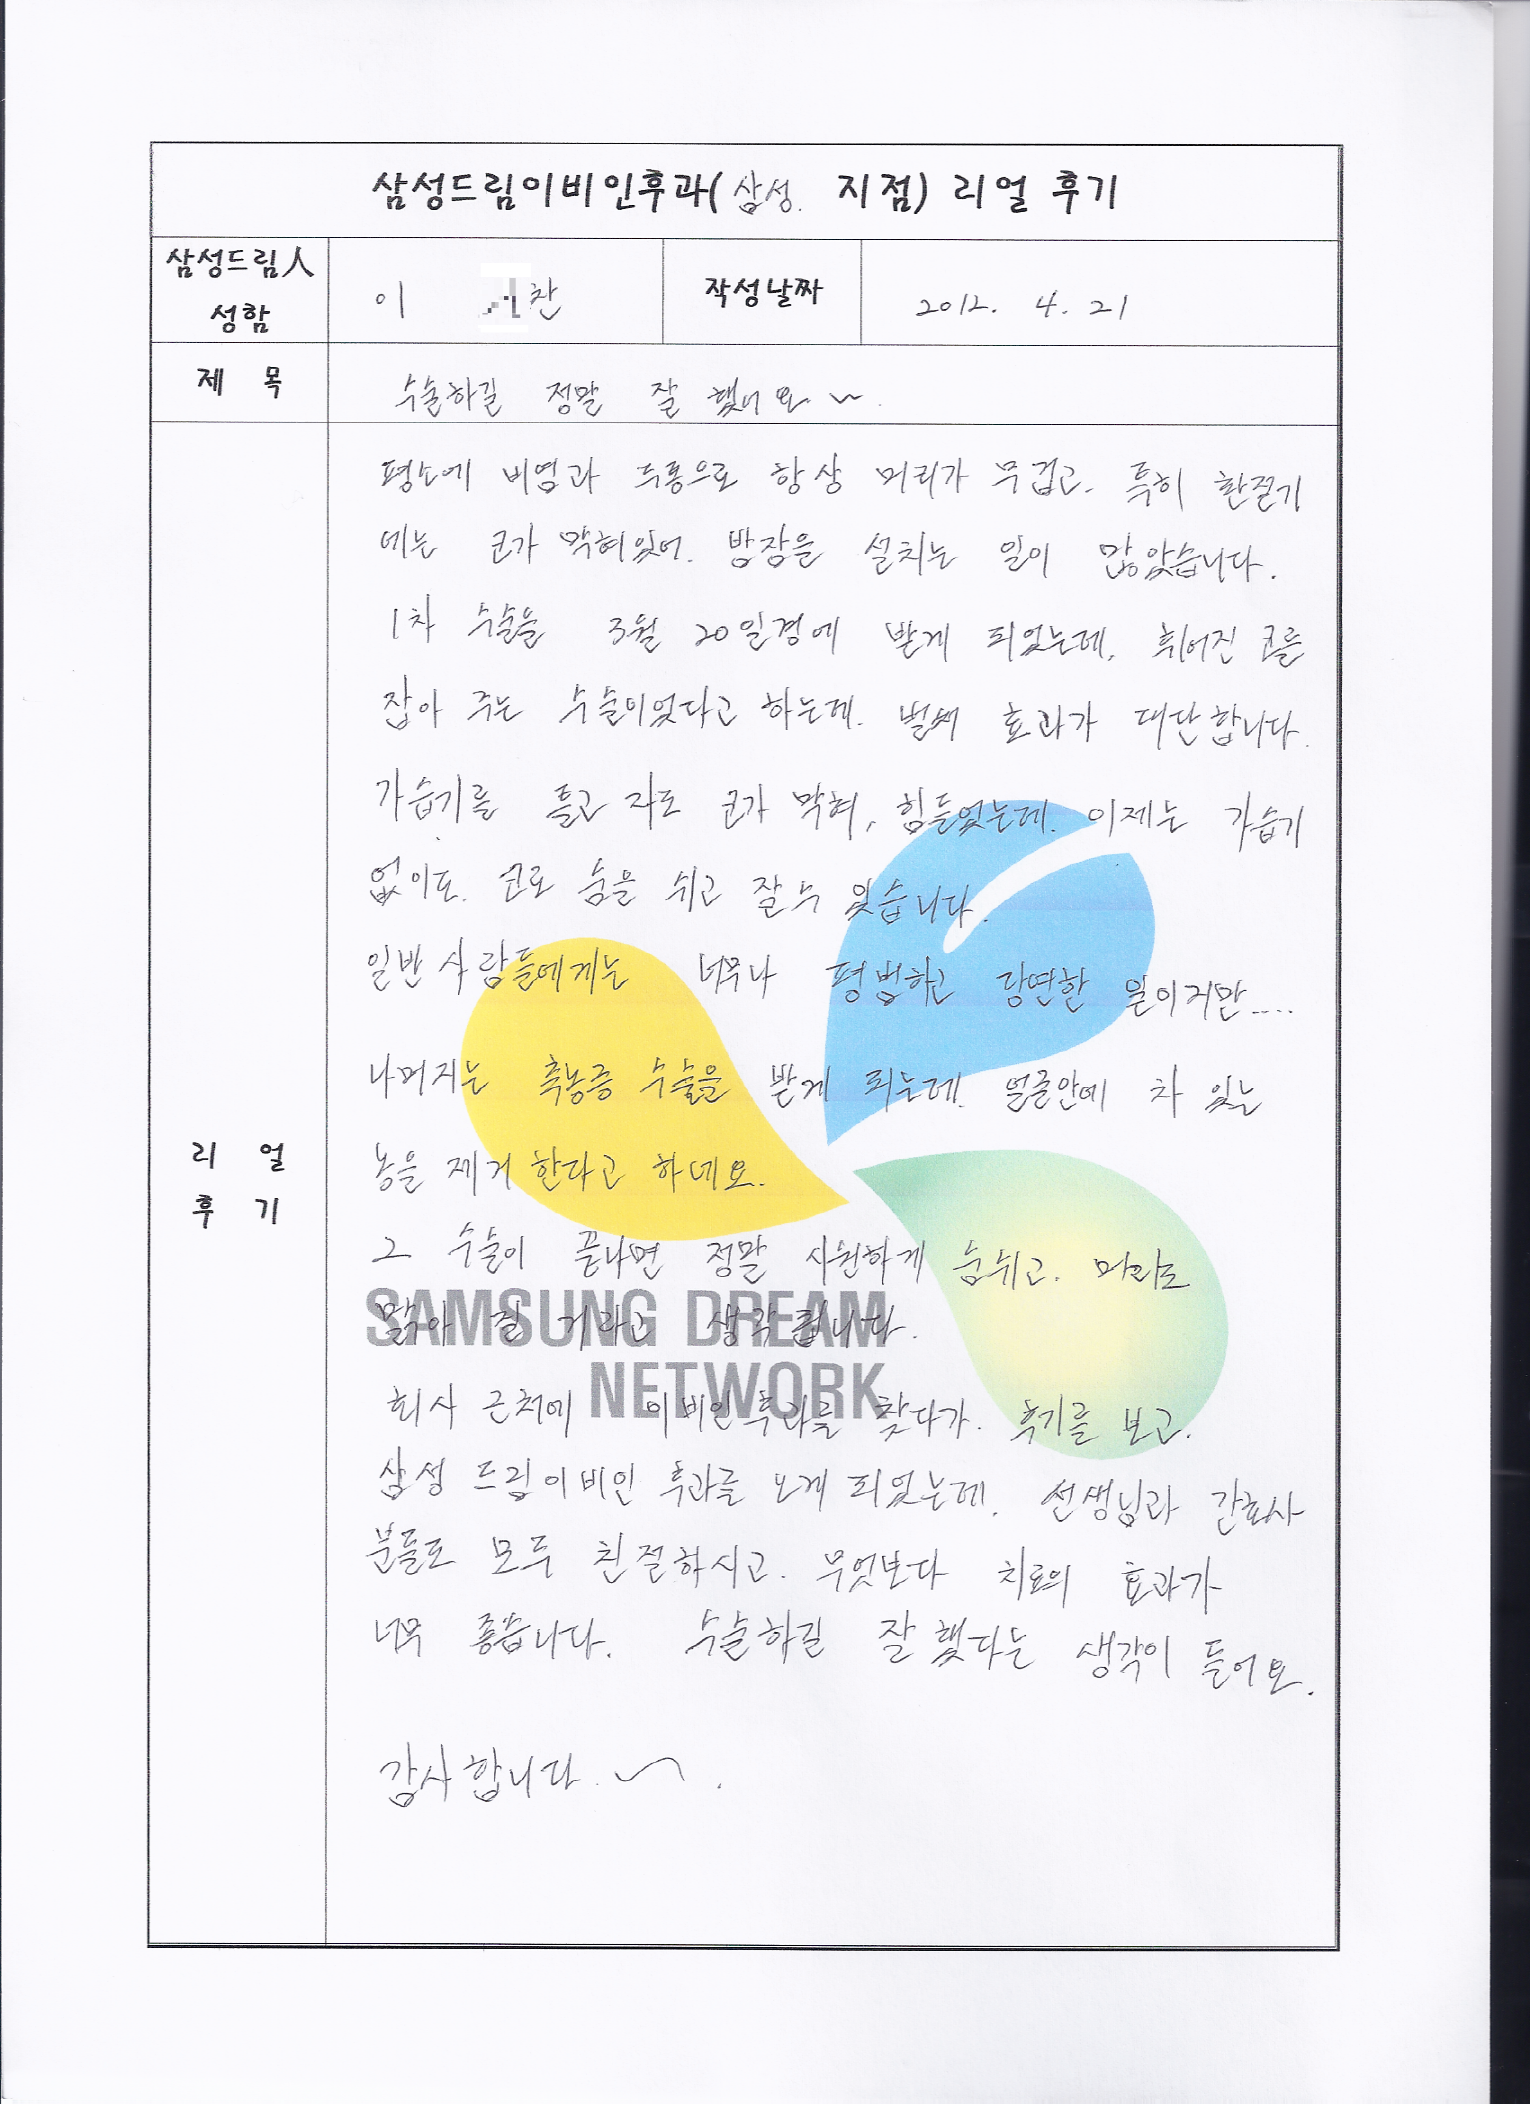 삼성드림이비인후과(삼성. 지점) 리얼 후기
삼성드림人 성함
이 찬
작성날짜
2012. 4. 21
제 목
수술하길 정말 잘 했어요~.
리 얼
후 기
평소에 비염과 두통으로 항상 머리가 무겁고. 특히 환절기
에는 코가 막혀있어. 밤잠을 설치는 일이 많았습니다.
1차 수술을 3월 20일경에 받게 되었는데, 휘어진 코를
잡아 주는 수술이었다고 하는데. 벌써 효과가 대단합니다.
가습기를 틀고 자도 코가 막혀, 힘들었는데. 이제는 가습기
없이도. 코로 숨을 쉬고 잘수 있습니다.
일반사람들에게는 너무나 평범하고 당연한 일이지만....
나머지는 축농증 수술을 받게 되는데. 얼굴안에 차 있는
농을 제거 한다고 하네요.
그 수술이 끝나면 정말 시원하게 숨쉬고. 머리도
맑아 질 거라고 생각됩니다.
회사 근처에 이비인후과를 찾다가. 후기를 보고.
삼성 드림이비인 후과를 오게 되었는데. 선생님과 간호사
분들도 모두 친절하시고. 무엇보다 치료의 효과가
너무 좋습니다. 수술하길 잘했다는 생각이 들어요.
감사합니다.~.
SAMSUNG DREAM
NETWORK